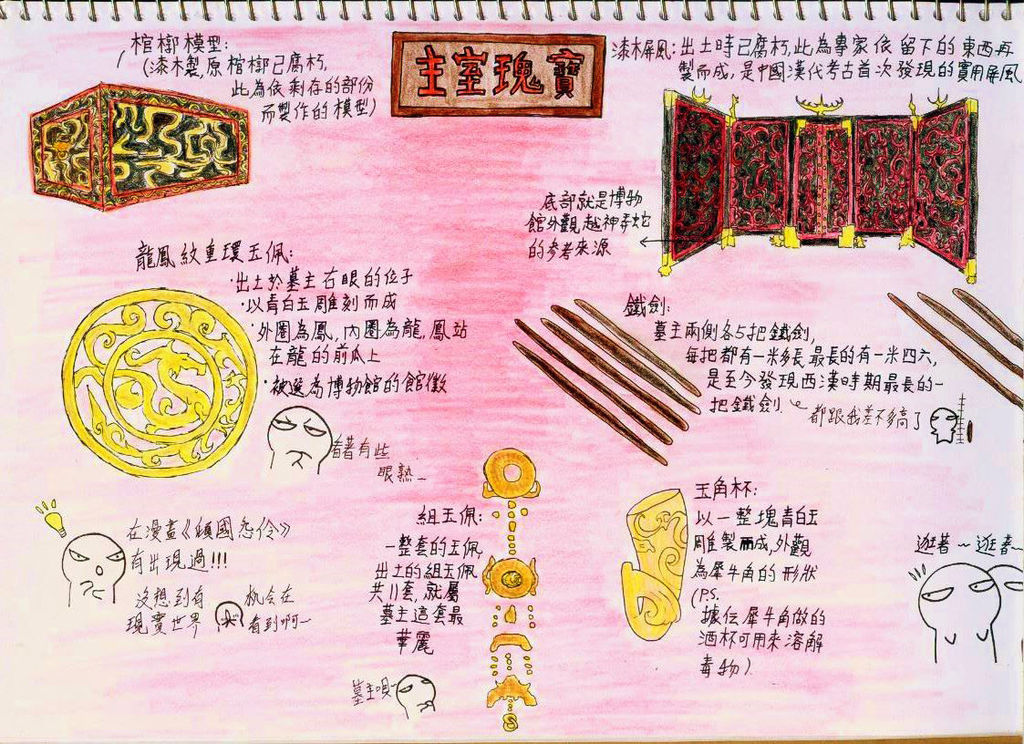 棺槨模型:
(漆木製,原棺槨已腐朽,
此為依剩存的部份
而製作的模型)
主室瑰寶
漆木屏風:出土時已腐朽,此為專家依留下的東西再
製而成,是中國漢代考古首次發現的實用屏風
底部就是博物
館外觀越神弄蛇
的參考來源
龍鳳紋重環玉佩:
·出土於墓主右眼的位子
·以青白玉雕刻而成
·外圈為鳳,內圈為龍,鳳站
在龍的前爪上
·被選為博物館的館徽
看著有些
眼熟~
鐵劍:
墓主兩側各5把鐵劍,
每把都有一米多長最長的有一米四六,
是至今發現西漢時期最長的一
把鐵劍
都跟我差不多高了
在漫畫《傾國怨伶》
有出現過!!!
沒想到有機会在
現實世界看到啊~
組玉佩:
一整套的玉佩,
出土的組玉佩
共11套,就屬
墓主這套最
華麗
墓主唄~
玉角杯:
以一整塊青白玉
雕製而成,外觀
為犀牛角的形狀
(PS.
據传犀牛角做的
酒杯可用來溶解
毒物)
逛著~逛著~